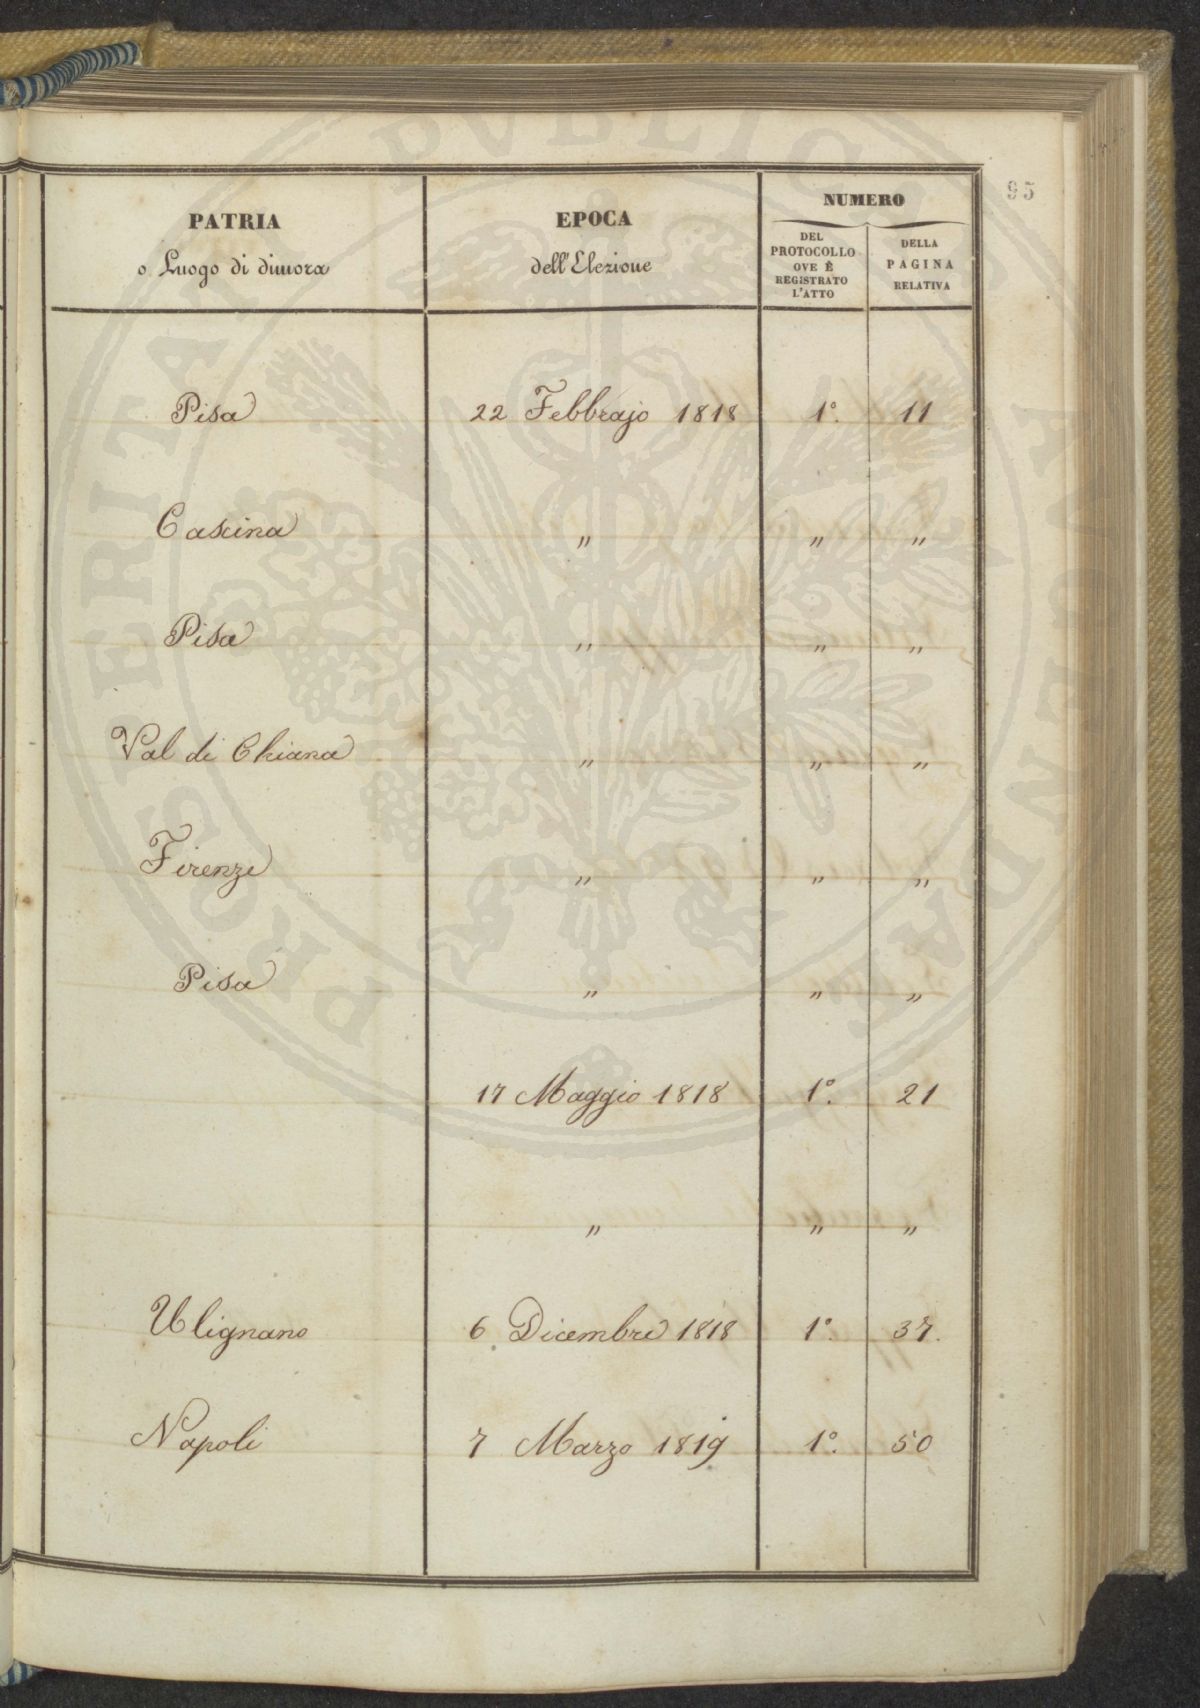 95
PATRIA
o Luogo di dimora
EPOCA
dell'Elezione
NUMERO
DEL
PROTOCOLLO
OVE È
REGISTRATO
L'ATTO
DELLA
PAGINA
RELATIVA
Pisa 22 Febbrajo 1818 1°. 11
Cascina " " "
Pisa " " "
Val di Chiana " " "
Firenze " " "
Pisa " " "
17 Maggio 1818 1°. 21
" " "
Ulignano 6 Dicembre 1818 1°. 37.
Napoli 7 Marzo 1819 1°. 50
PROSPERITATI PVBLICAE AVGENDAE